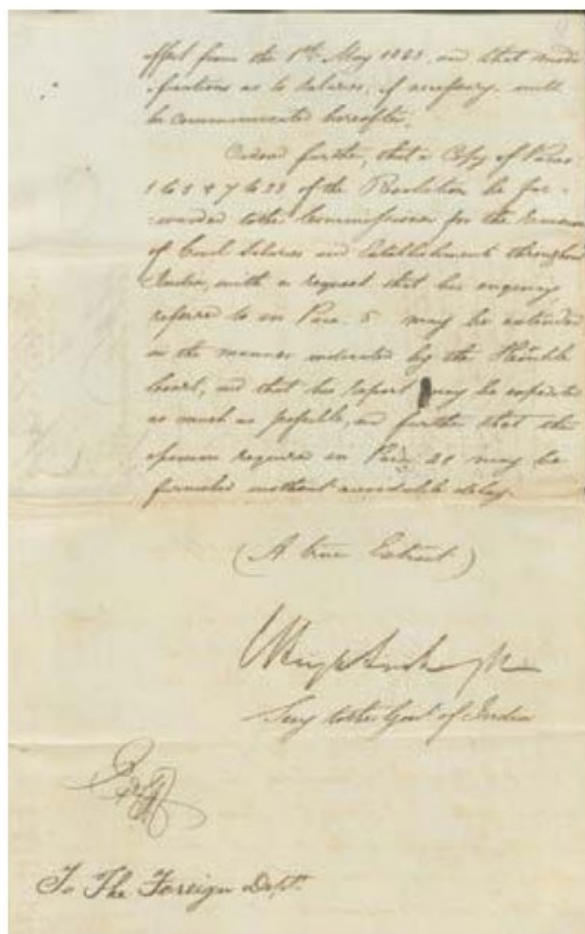 effect from the 1st May 1863, and that modi
fications as to salaries, if necessary, will
be communicated hereafter.
Ordered further, that a Copy of Paras
1 to 5 & 7 to 23 of the Resolution be for-
warded to the Commissioner for the Revision
of Civil Salaries and Establishments throughout
India, with a request that his enquiry
referred to in Para. 5 may be extended
in the manner indicated by the Hon'ble
Court, and that his report may be expedited
as much as possible, and further that the
opinion required in Para 20 may be
furnished without avoidable delay.
(A true Extract)
Secy to the Govt of India
To The Foreign Dept.